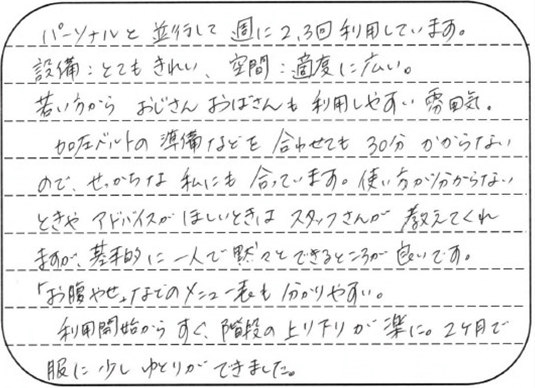 パーソナルと並行して週に2,3回利用しています。
設備：とてもきれい、空間：適度に広い。
若い方からおじさんおばさんも利用しやすい雰囲気。
加圧ベルトの準備などを合わせても30分かからない
ので、せっかちな私にも合っています。使い方が分からない
ときやアドバイスがほしいときはスタッフさんが教えてくれ
ますが、基本的に一人で黙々とできるところが良いです。
「お腹やせ」などのメニュー表も分かりやすい。
利用開始からすぐ、階段の上り下りが楽に。2ヶ月で
服に少しゆとりができました。